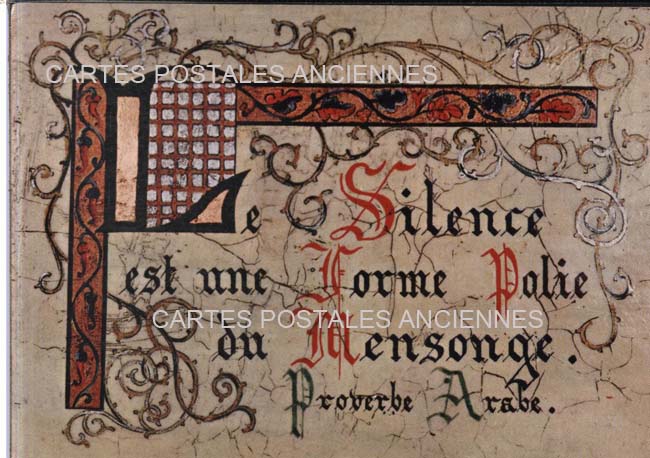 CARTES POSTALES ANCIENNES
Le Silence
est une Forme Polie
CARTES POSTALES ANCIENNES
du Mensonge.
Proverbe Arabe.